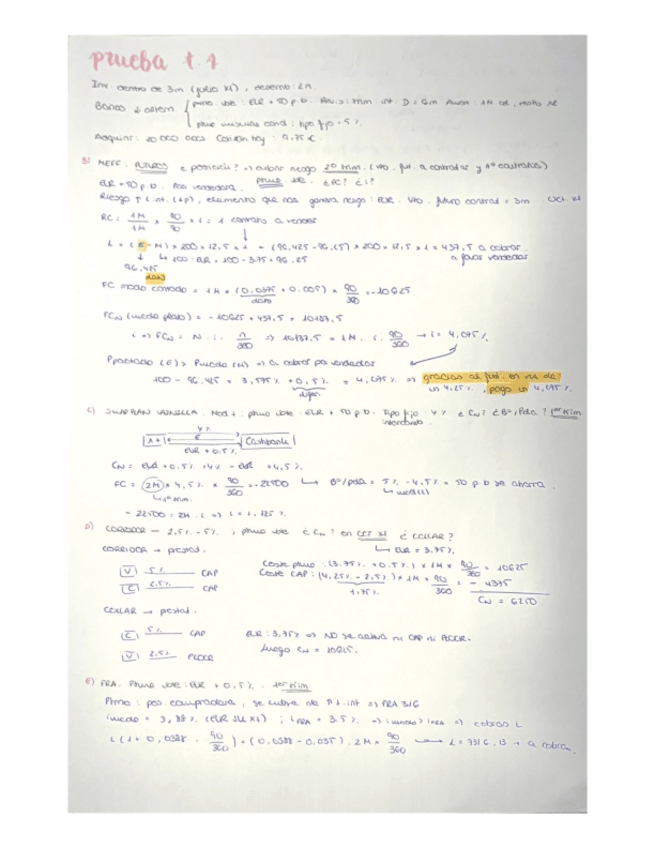 prueba t.4
Inv. dentro de 3m (julio X1), desemb: 2M.
Banco 2 opcem { pmo vble: EUR + 50 p.b. Revis: trim. int. D = 6m
plue mismas cond: tipo fijo = 5%.
Adquirir: 20 000 accs Hoy = 9.75 €
B) MEFF. FUTUROS e posición? => cubrir riesgo 2º trim. (vto. fut. a contratar y 1º
EUR + 50 p.b. Pos vendedora. pmo vble. ¿FC? ¿i?
Riesgo ↑ t.int. (↓p), elemento que nos genera riesgo: EUR. Vto. futuro contrat = 3m
RC = 1M/1M × 90/90 × 1 = 1 contrato a vender
L = (E - M) × 100 × 12,5 × 1 = (96,425 - 96,25) × 200 × 12,5 × 1 = 437,5 a cobrar.
↳ 100 - EUR = 100 - 3.75 = 96.25 a favor vendedor
96,425
dato
FC mdo contado = 1M × (0.0375 + 0.005) × 90/360 = -10625
dato
FCN (mdo plazo) = - 10625 + 437,5 = 10187,5
i => FCN = N . i . n/360 => 10187,5 = 1M . i . 90/360 → i = 4,075 %.
Ppactado (E) > Pmercado (M) => a cobrar por vendedor
100 - 96.425 = 3,575 % + 0,5 % = 4,075 % => gracias al fut. en vez de
un 4,25 %, pago un 4,075 %.
C) SWAP PLAN VAINILLA. Mod 1: pmo vble: EUR + 50 p.b. Tipo fijo: 4 % ¿CN? ¿Bº/Pdda? 1er trim.
intercambio.
4 %
A+1 Cashbank
EUR + 0.5 %
CN = EUR + 0,5 % + 4 % - EUR = 4,5 %.
FC = 2M × 4,5 % × 90/360 = -22500 ↳ Bº/pdda = 5 % - 4,5 % = 50 p.b se ahorra.
↳ 1er trim.
- 22500 = 2M . i => i = 1,125 %
D) CORREDOR — 2,5 % - 5 %. ; pmo vble ¿CN? en OCT X1 ¿COLLAR?
↳ EUR = 3.75 %.
CORREDOR → prestat.
V 5 % CAP
C 2,5 % CAP
Coste pmo: (3.75 % + 0.5 %) × 1M × 90/360 = 10625
Coste CAP: (4,25 % - 2,5 %) × 1M × 90/360 = - 4375
1,75 %
CN = 6250
COLLAR → prestat.
C 5 % CAP
V 2,5 % FLOOR
EUR: 3,75 % => NO se activa ni CAP ni FLOOR.
Luego CN = 10625.
E) FRA. Pmo vble: EUR + 0,5 %. 1er trim
Pmo: pos. compradora, se cubre de ↑ t.int => FRA 3/6
imdo = 3,88 % (EUR JUL X1) ; iFRA = 3.5 % => imdo > iFRA => cobras L
L (1 + 0,0388 . 90/360) = (0,0388 - 0,035) . 2M × 90/360 → L = → a cobrar.